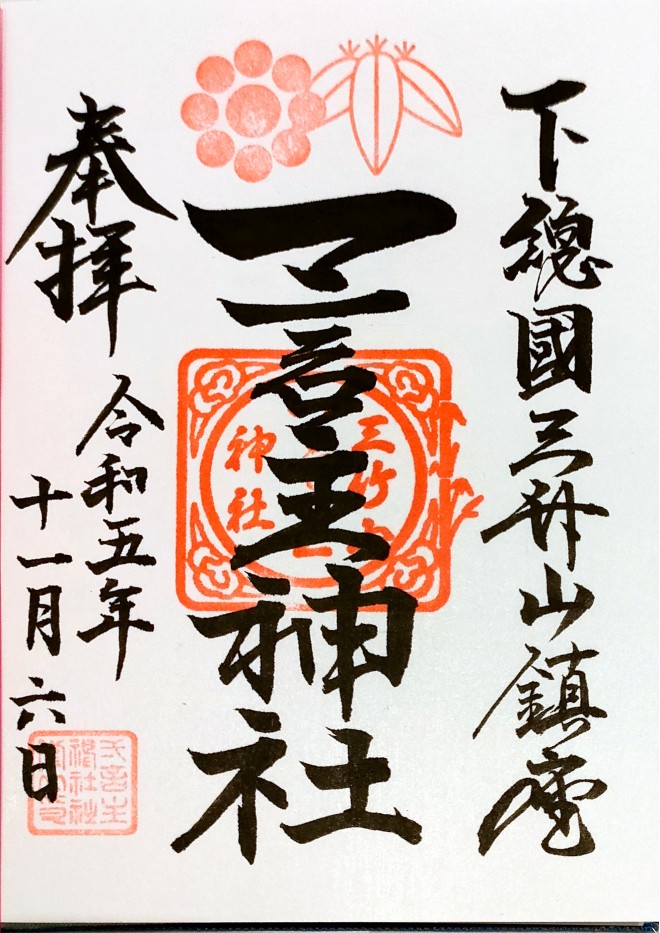 下總國三竹山鎮座
一言主神社
奉拝
令和五年
十一月六日
三竹山
神社